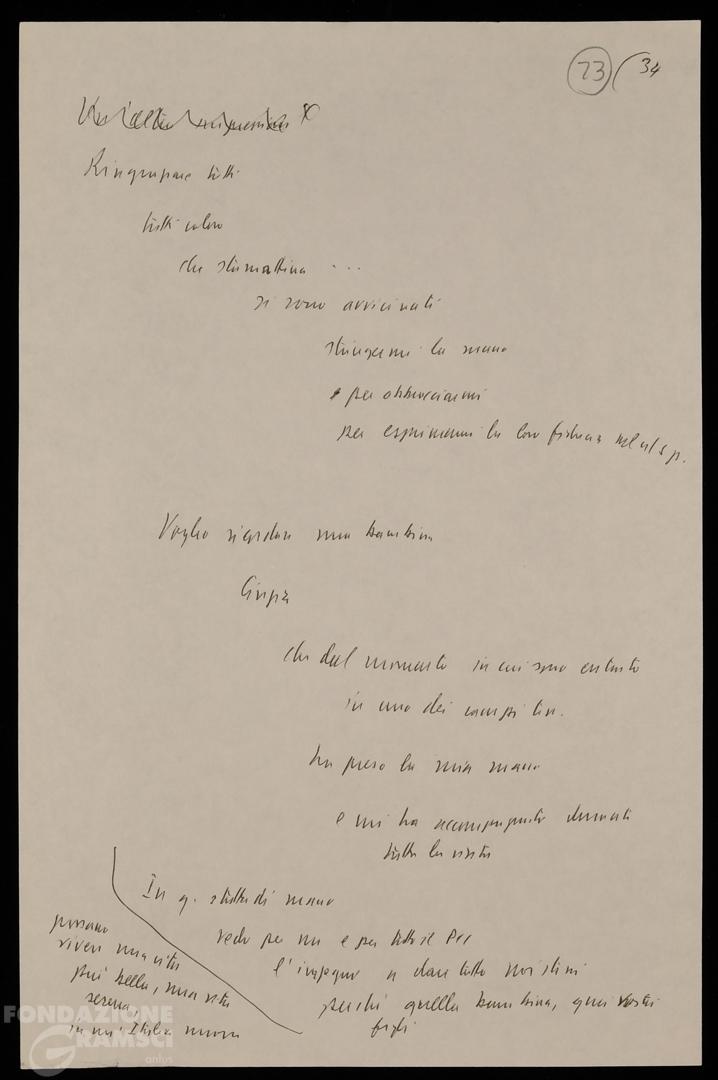 23 34
Ringraziare tutti
tutti coloro
che stamattina ...
si sono avvicinati
stringermi la mano
e per abbracciarmi
per esprimermi la loro fiducia nel
Voglio ricordare una bambina
Cinzia
che dal momento in cui sono entrato
in uno dei campi
ha preso la mia mano
e mi ha accompagnato durante
tutta la visita
In q. stretta di mano
vedo per me e per tutto il PCI
l'impegno a dare tutto noi stessi
perché quella bambina, quei vostri
figli
possano
vivere una vita
più bella, una vita
serena,
in un'Italia nuova
FONDAZIONE
GRAMSCI
onlus